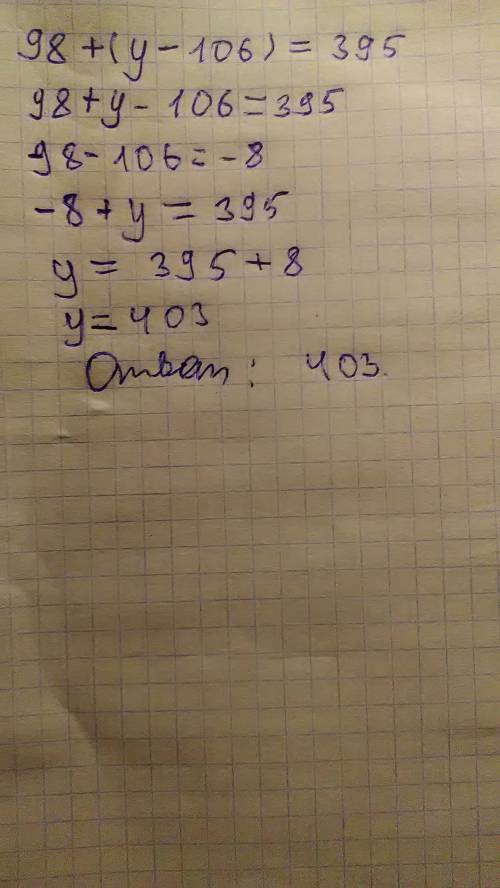 98+(y-106)=395
98+y-106=395
98-106=-8
-8+y=395
y=395+8
y=403
Ответ: 403.